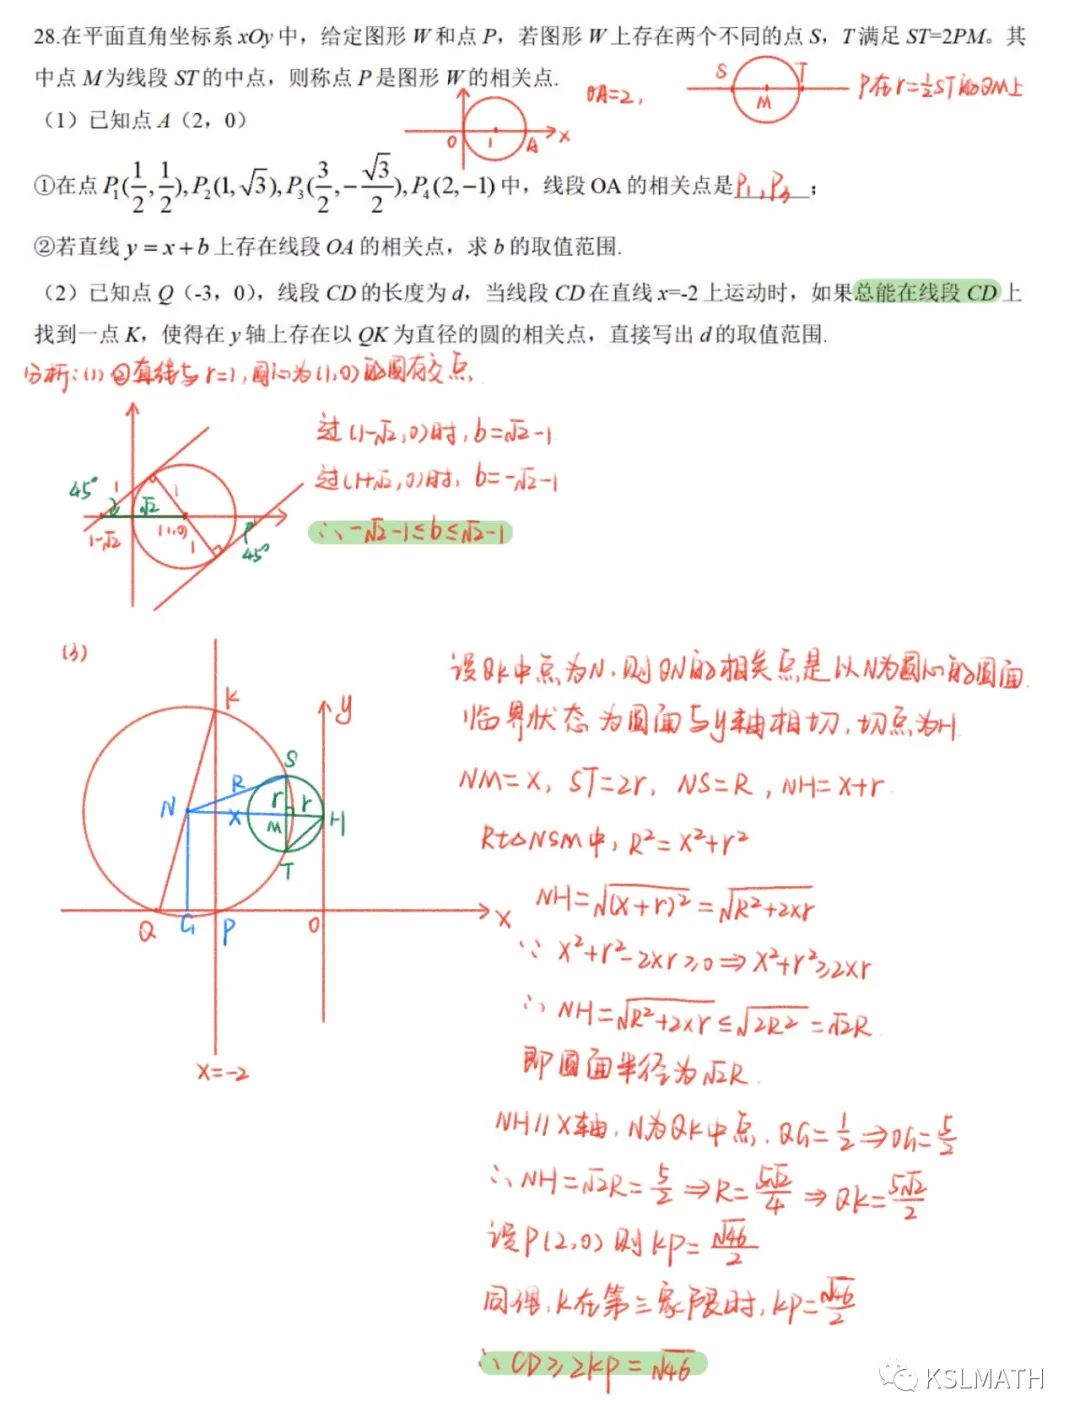 28.在平面直角坐标系 xOy 中，给定图形 W 和点 P，若图形 W 上存在两个不同的点 S，T 满足 ST=2PM。其
中点 M 为线段 ST 的中点，则称点 P 是图形 W 的相关点.
OA=2，
S T
M
P在r=½ST的⊙M上
（1）已知点 A（2，0）
O 1 A x
①在点 P₁(1/2, 1/2), P₂(1, √3), P₃(3/2, -√3/2), P₄(2, -1) 中，线段 OA 的相关点是 P₁, P₃ ；
②若直线 y = x + b 上存在线段 OA 的相关点，求 b 的取值范围.
（2）已知点 Q（-3，0），线段 CD 的长度为 d，当线段 CD 在直线 x=-2 上运动时，如果总能在线段 CD 上
找到一点 K，使得在 y 轴上存在以 QK 为直径的圆的相关点，直接写出 d 的取值范围.
分析：(1) ②直线与r=1，圆心为(1,0)的圆有交点
过(1-√2,0)时，b=√2-1
过(1+√2,0)时，b=-√2-1
∴-√2-1≤b≤√2-1
45° 1 1 √2
1-√2 (1,0) 1 45°
(3)
K y
S
N R r r
x M H
T
Q G P O x
x=-2
设QK中点为N，则QN的相关点是以N为圆心的圆面
临界状态为圆面与y轴相切，切点为H
NM=x，ST=2r，NS=R，NH=x+r
Rt△NSM中，R²=x²+r²
NH=√(x+r)²=√R²+2xr
∵ x²+r²-2xr≥0⇒x²+r²≥2xr
∴ NH=√R²+2xr≤√2R²=√2R
即圆面半径为√2R
NH//x轴，N为QK中点，QG=1/2⇒OG=5/2
∴NH=√2R=5/2⇒R=5√2/4⇒QK=5√2/2
设P(2,0)则KP=√46/2
同理，K在第三象限时，KP=√46/2
∴CD≥2KP=√46
KSLMATH